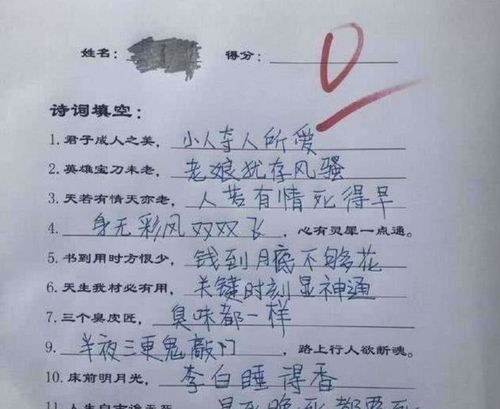 姓名： 得分： 0
诗词填空：
1.君子成人之美，小人夺人所爱
2.英雄宝刀未老，老娘犹存风骚
3.天若有情天亦老，人若有情死得早
4.身无彩风双双飞，心有灵犀一点通。
5.书到用时方恨少，钱到月底不够花
6.天生我材必有用，关键时刻显神通
7.三个臭皮匠，臭味都一样
9.半夜三更鬼敲门，路上行人欲断魂。
10.床前明月光，李白睡得香
11.人生自古谁无死，早死晚死都要死